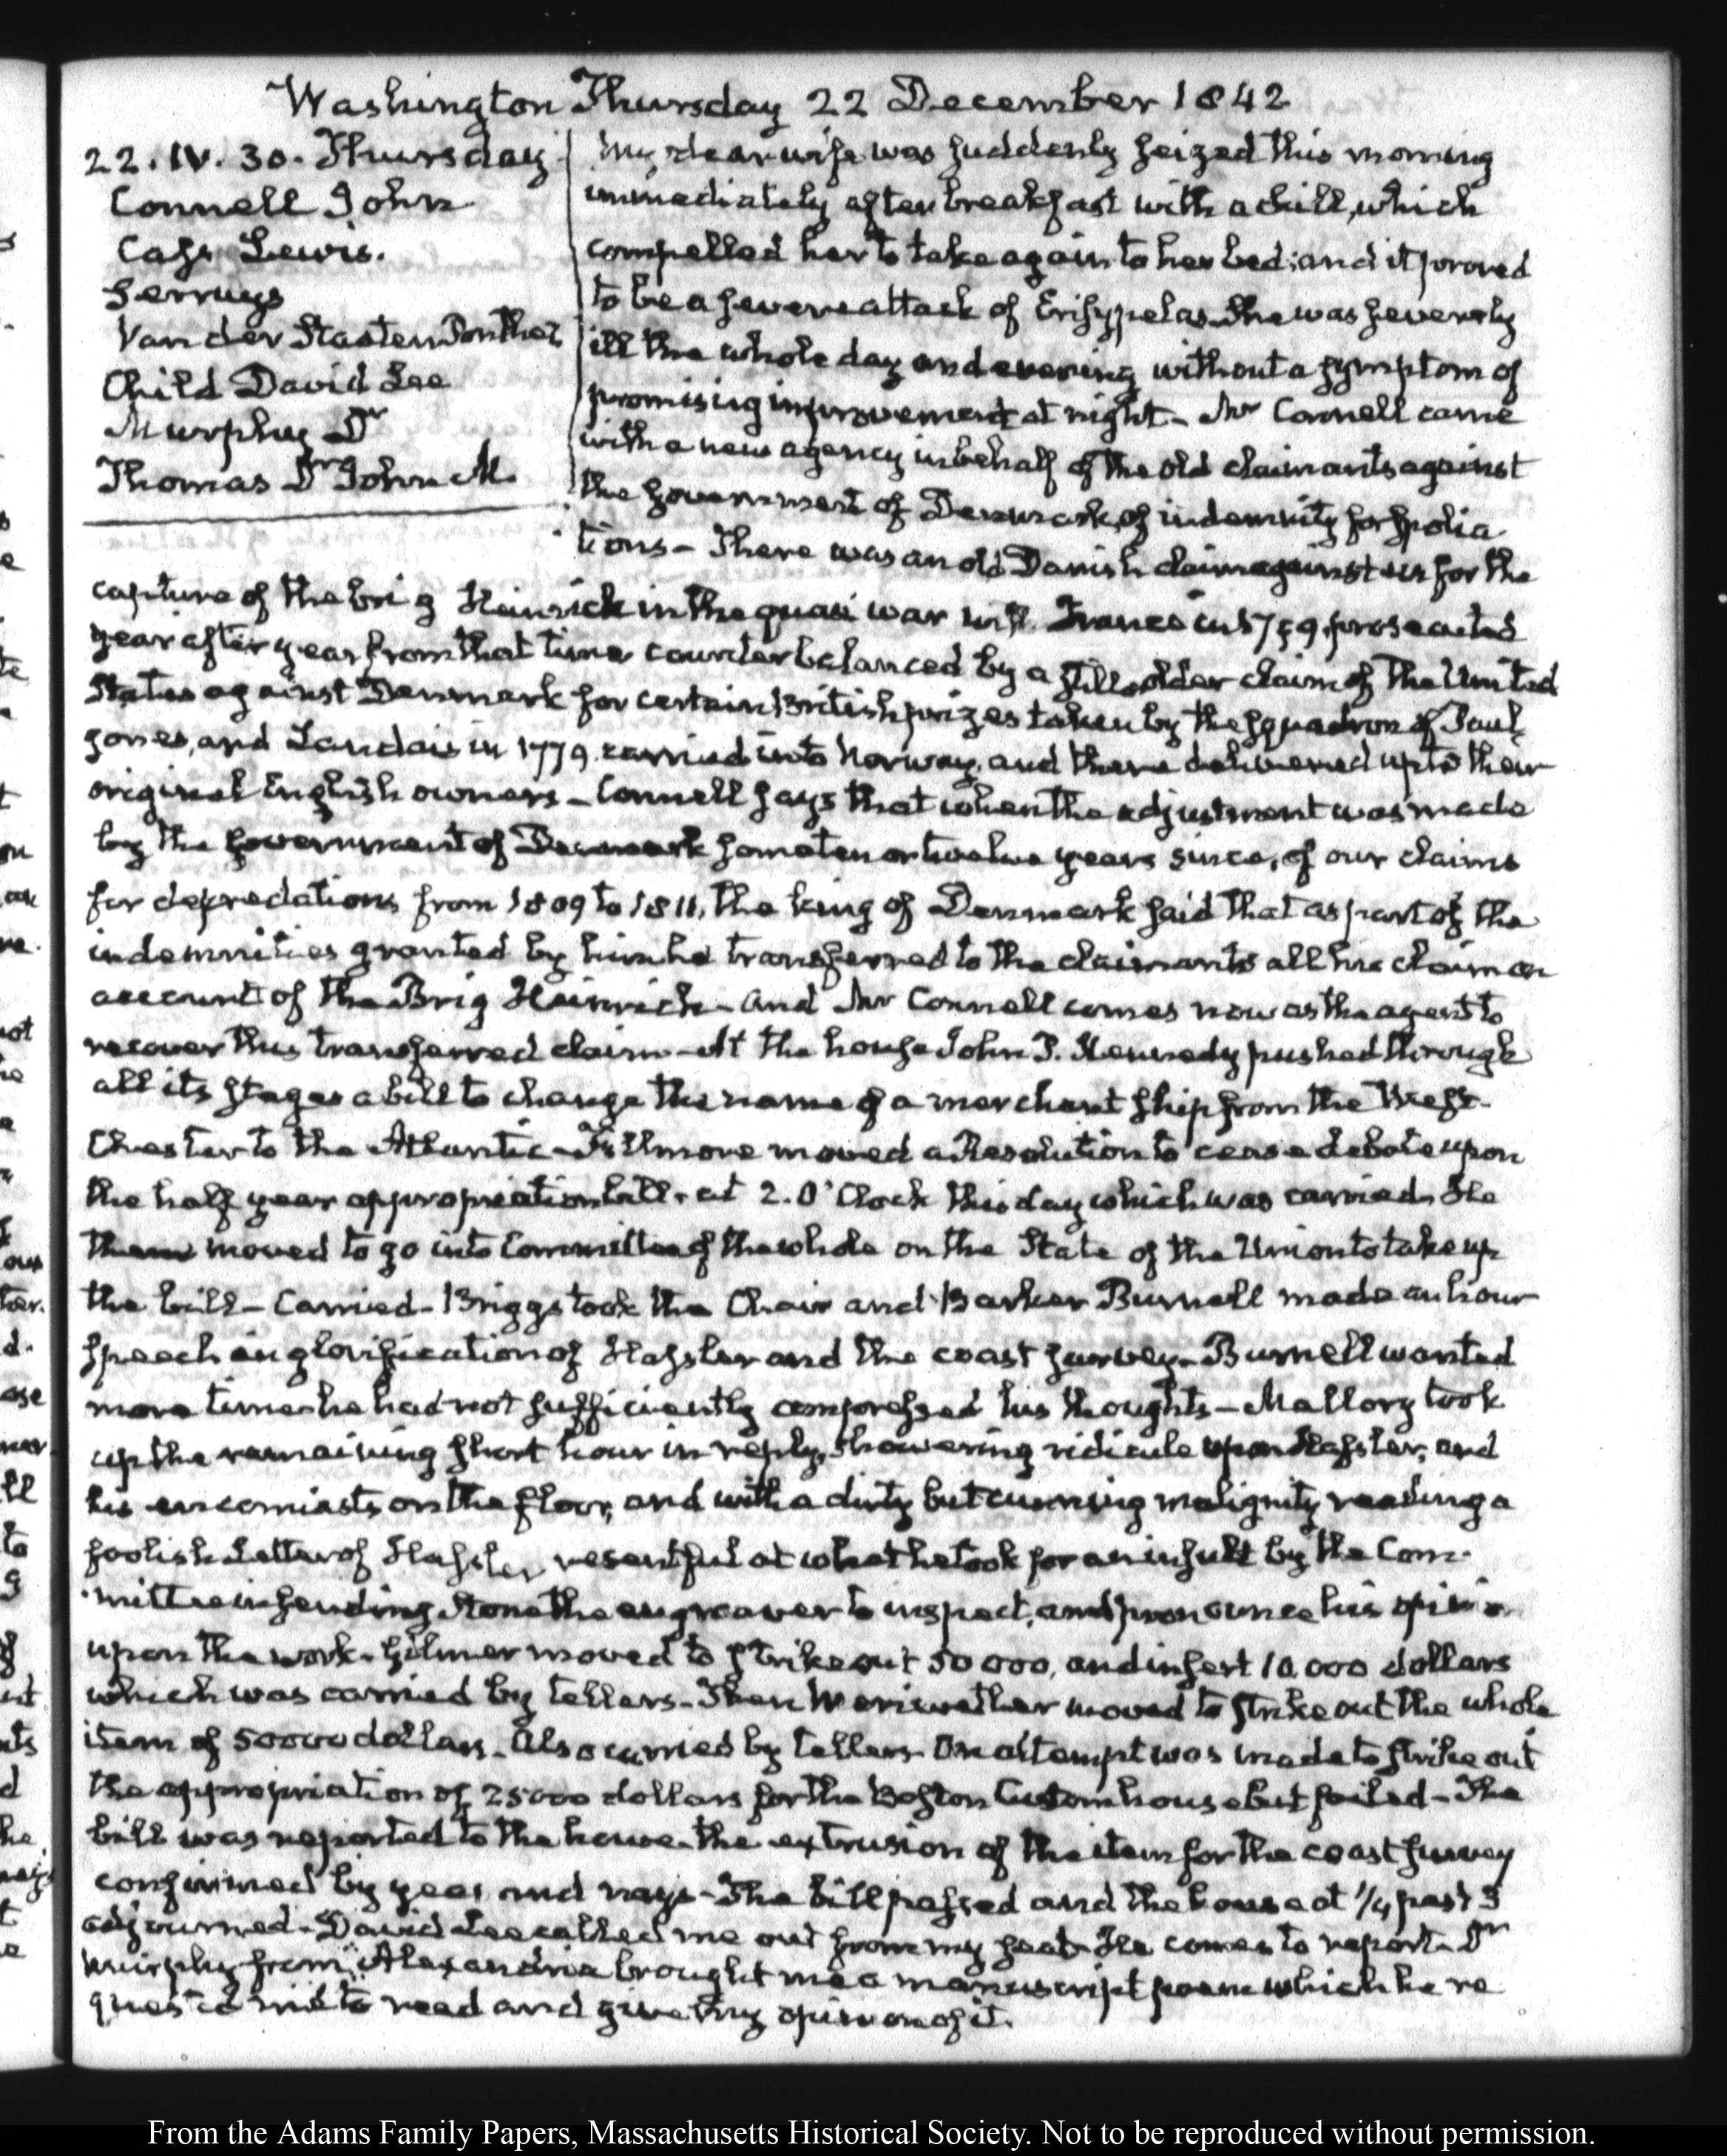 Washington Thursday 22 December 1842
22. IV. 30. Thursday
Connell John
Cass Lewis.
Serruys
Van der Straten Ponthoz
Child David Lee
Murphy Dr
Thomas Dr John M.
My dear wife was suddenly seized this morning
immediately after breakfast with a chill, which
compelled her to take again to her bed; and it proved
to be a severe attack of Erisypelas. She was severely
ill the whole day and evening without a symptom of
promising improvement at night – Mr Connell came
with a new agency in behalf of the old claimants against
the Government of Denmark, of indemnity for spolia
tions – There was an old Danish claim against us for the
capture of the brig Heinrich in the quasi war with France in 1799, prosecuted
year after year from that time counterbalanced by a still older claim of the United
States against Denmark for certain British prizes taken by the squadron of Paul
Jones, and Landais in 1779 carried into Norway, and there delivered up to their
original English owners – Connell says that when the adjustment was made
by the Government of Denmark some ten or twelve years since, of our claims
for depredations from 1809 to 1811, the king of Denmark said that as part of the
indemnities granted by him he transferred to the claimants all his claim on
account of the Brig Heinrich – and Mr Connell comes now as the agent to
recover this transferred claim – At the house John P. Kennedy pushed through
all its stages a bill to change the name of a merchant ship from the West-
Chester to the Atlantic – Fillmore moved a Resolution to cease debate upon
the half year appropriation bill, at 2. O'Clock this day which was carried. He
then moved to go into Committee of the whole on the State of the Union to take up
the bill – Carried – Briggs took the Chair and Barker Burnell made an hour
speech in glorification of Hassler and the coast survey – Burnell wanted
more time he had not sufficiently compressed his thoughts – Mallory took
up the remaining short hour in reply, showering ridicule upon Hassler, and
his encomiasts on the floor, and with a dirty but cunning malignity reading a
foolish Letter of Hassler resentful at what he took for an insult by the Com-
mittee in sending Stone the engraver to inspect, and pronounce his opinion
upon the work – Gilmer moved to strike out 50 000, and insert 10.000 dollars
which was carried by tellers – Then Meriwether moved to strike out the whole
item of 50000 dollars – Also carried by tellers – An attempt was made to strike out
the appropriation of 25000 dollars for the Boston Custom house but failed – The
bill was reported to the house – the extrusion of the item for the coast survey
confirmed by yeas and nays – The bill passed and the house at 1/4 past 3
adjourned – David Lee called me out from my seat – He comes to report – Dr
Murphy from Alexandria brought me a manuscript poem which he re
quested me to read and give my opinion of it.
From the Adams Family Papers, Massachusetts Historical Society. Not to be reproduced without permission.